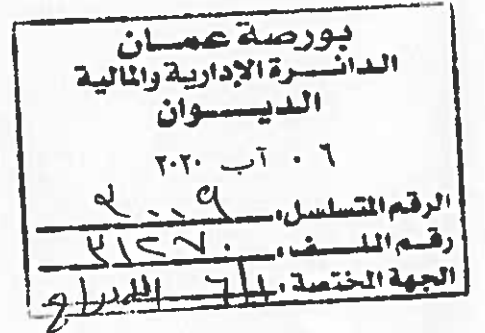 بورصة عمان
الدائرة الإدارية والمالية
الديوان
٠٦ آب ٢٠٢٠
الرقم المتسلسل:
رقم الملف: ٣١٢٧٠
الجهة المختصة: